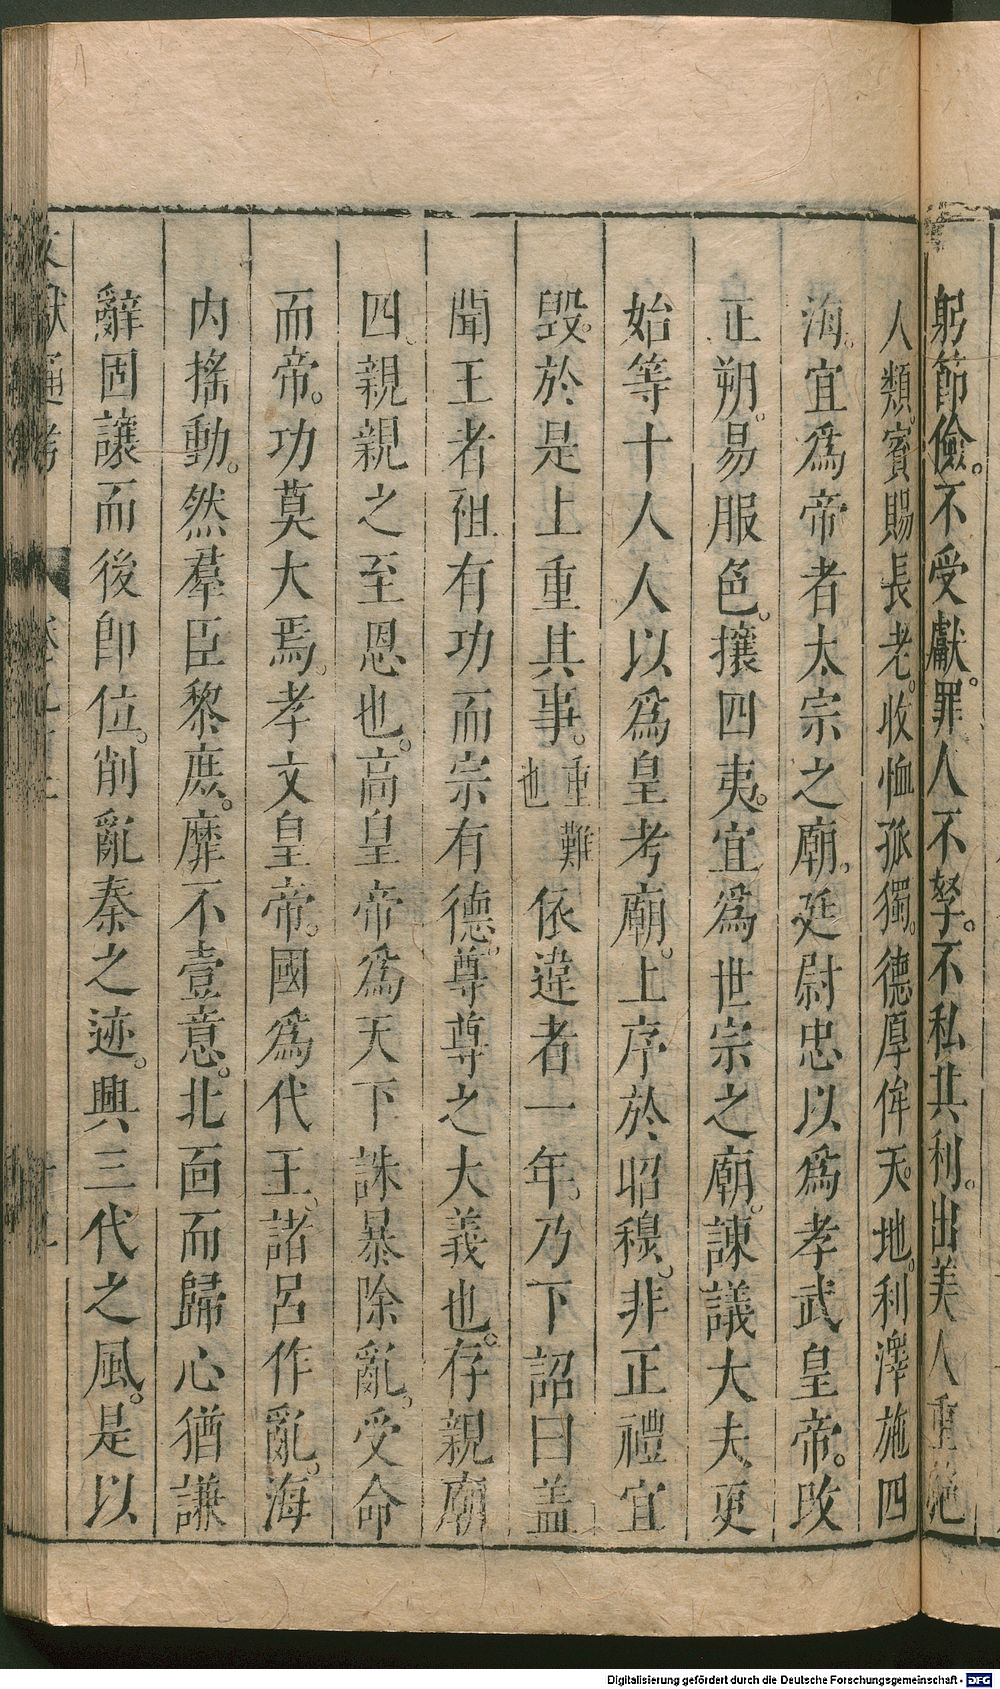 躬節儉。不受獻。罪人不孥。不私其利。出美人重絶
人類。賓賜長老。收恤孤獨。德厚侔天地。利澤施四
海。宜爲帝者太宗之廟。廷尉忠以爲孝武皇帝。改
正朔。易服色。攘四夷。宜爲世宗之廟。諫議大夫更
始等十人人以爲皇考廟。上序於昭穆。非正禮宜
毁。於是上重其事。重難也依違者一年。乃下詔曰盖
聞王者祖有功而宗有德。尊尊之大義也。存親廟
四。親親之至恩也。高皇帝爲天下誅暴除亂。受命
而帝。功莫大焉。孝文皇帝。國爲代王。諸呂作亂。海
内搖動。然羣臣黎庶。靡不壹意。北面而歸心猶謙
辭固讓而後即位。削亂秦之迹。興三代之風。是以
文獻通考
Digitalisierung gefördert durch die Deutsche Forschungsgemeinschaft - DFG